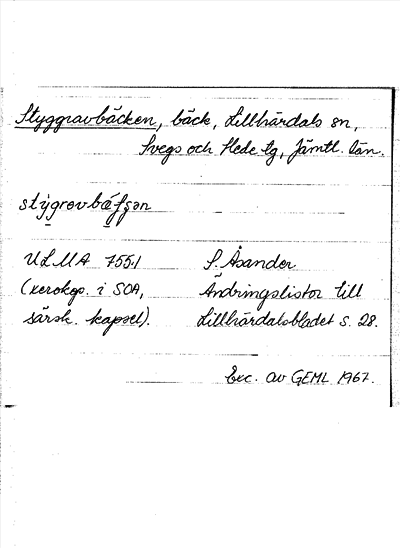 Styggravbäcken, bäck, Lillhärdals sn,
Svegs och Hede tg, Jämtl. län.
stýgrøvbǽʃʃən
ULMA 755:1 S. Åsander
(xerokop. i SOA, Ändringslistor till
särsk. kapsel). Lillhärdalsbladet s. 28.
Exc. av GEML 1967.